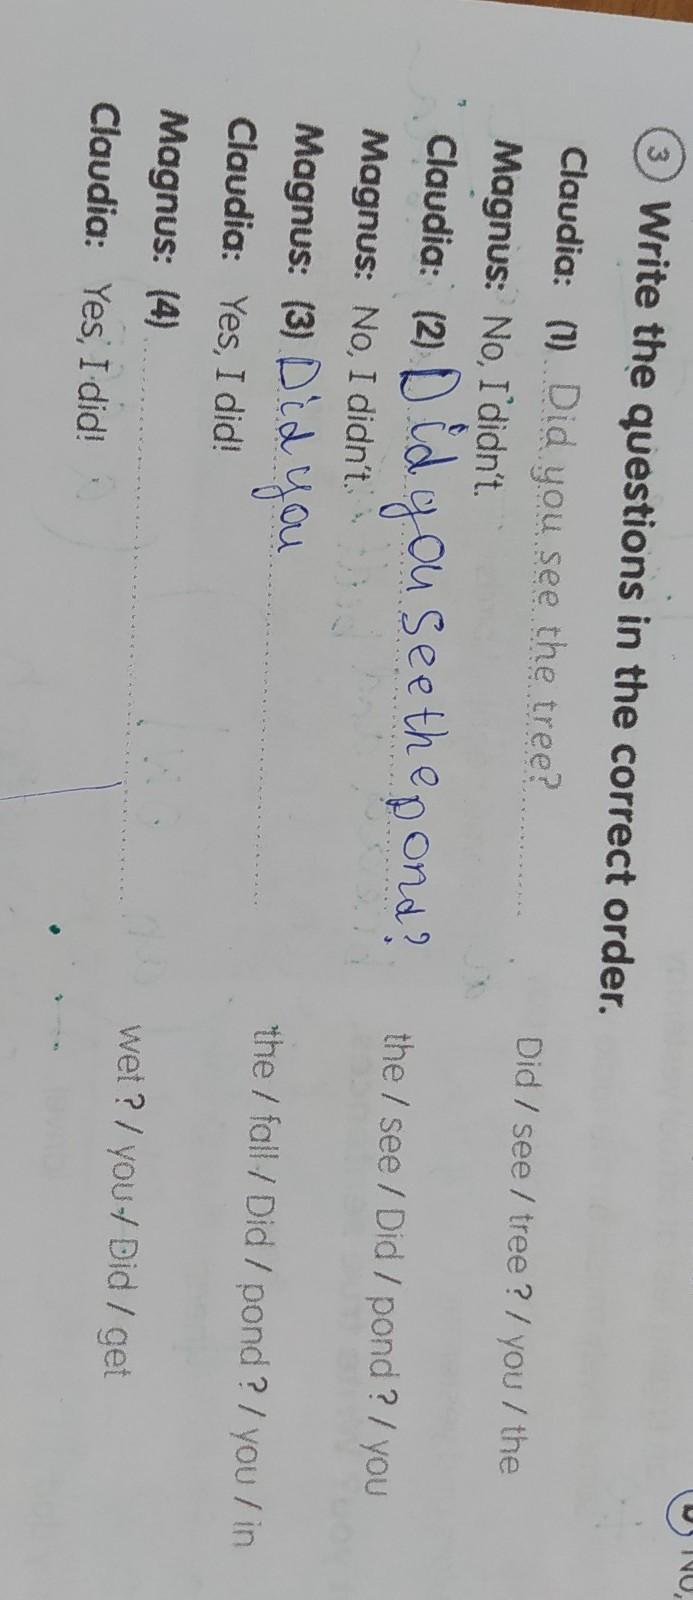 3 Write the questions in the correct order.
Claudia: (1) Did you see the tree? Did / see / tree ? / you / the
Magnus: No, I didn't.
Claudia: (2) Did you see the pond? the / see / Did / pond ? / you
Magnus: No, I didn't.
Magnus: (3) Did you the / fall / Did / pond ? / you / in
Claudia: Yes, I did!
Magnus: (4) wet ? / you / Did / get
Claudia: Yes, I did!